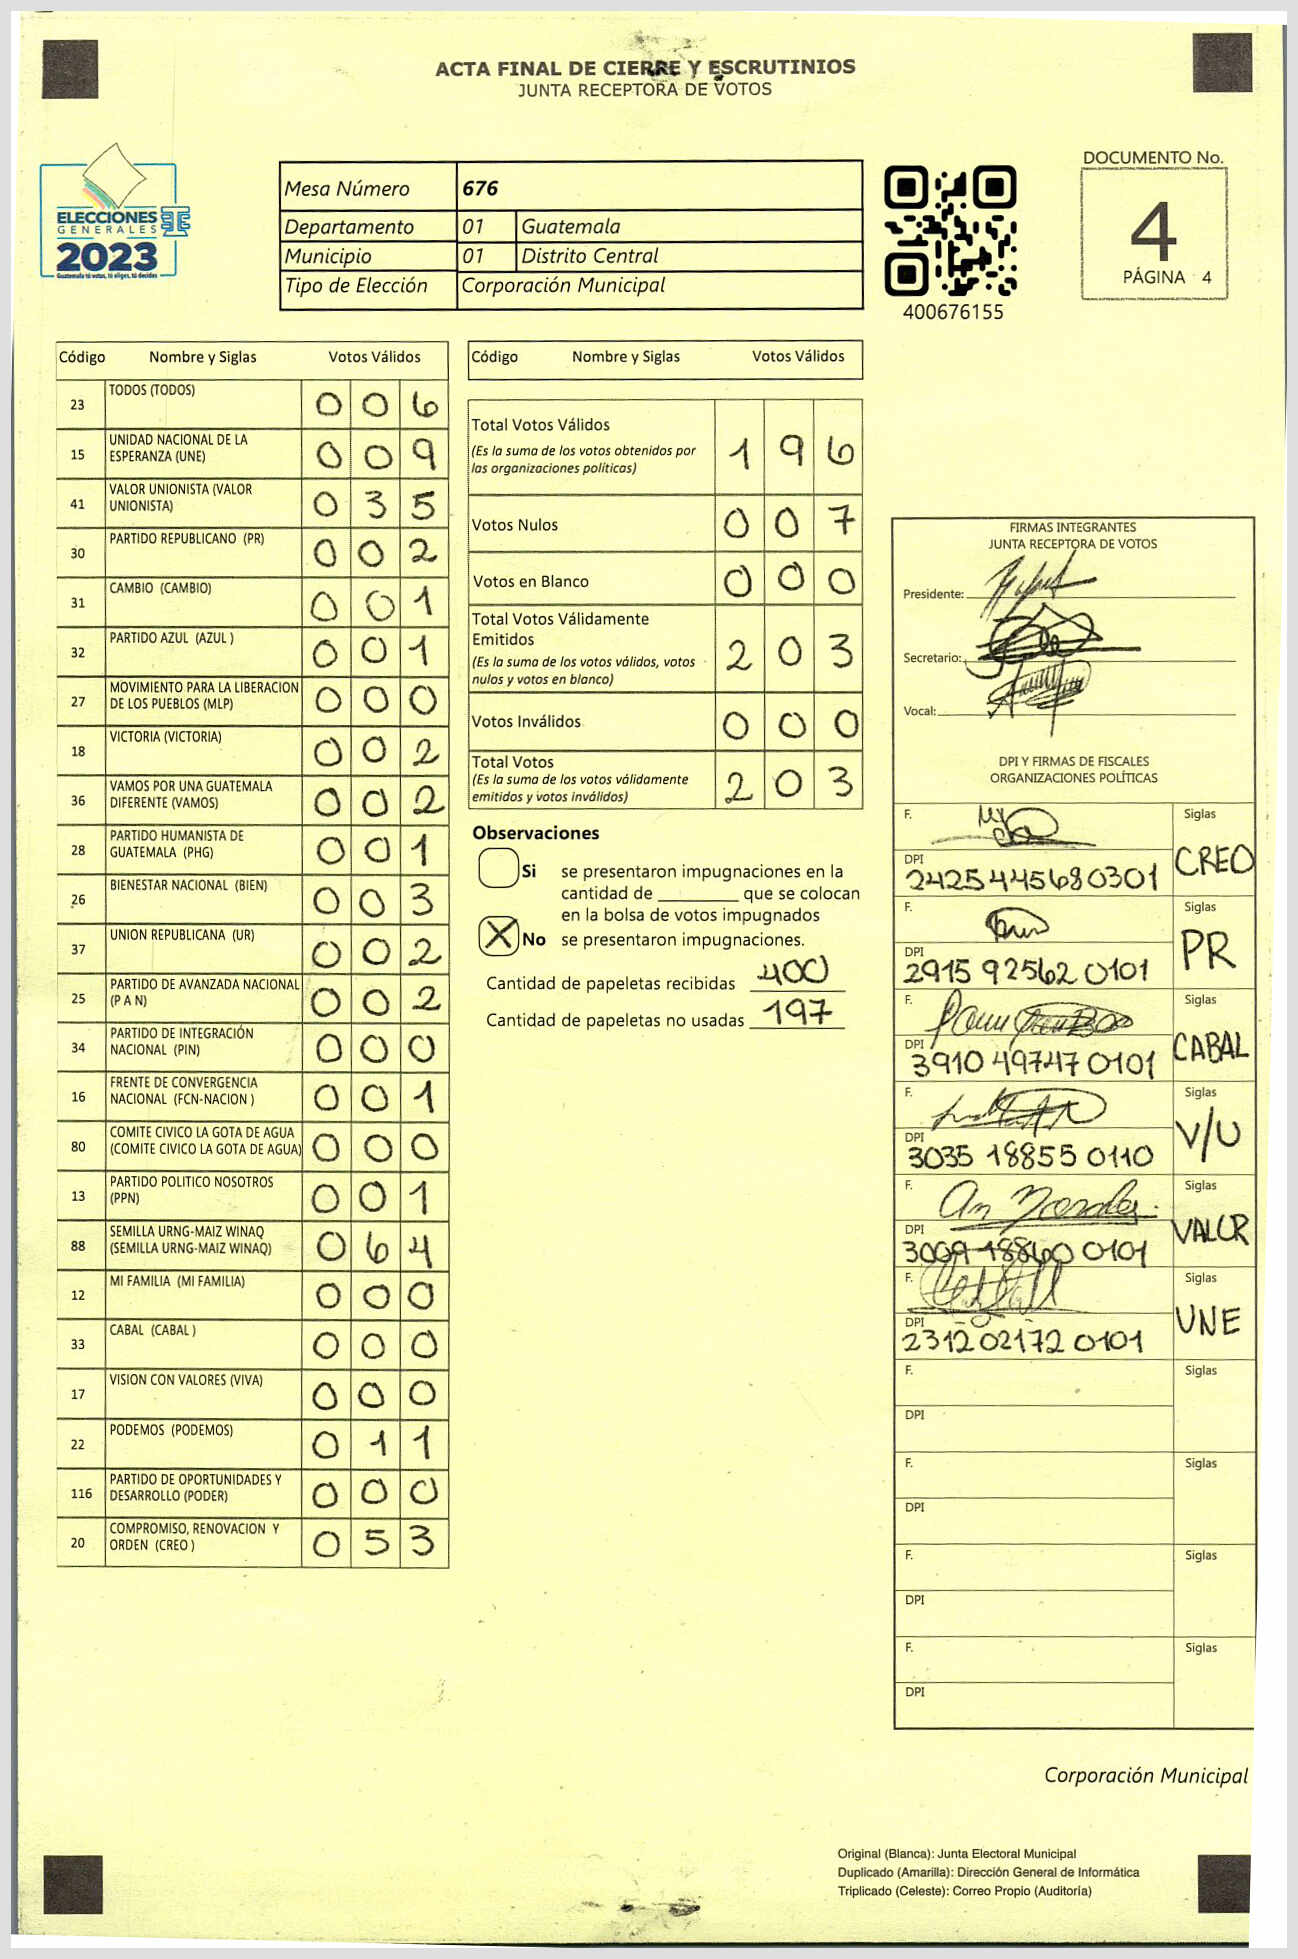 ACTA FINAL DE CIERRE Y ESCRUTINIOS
JUNTA RECEPTORA DE VOTOS
ELECCIONES
GENERALES
2023
Guatemala tú votas, tú eliges, tú decides
Mesa Número 676
Departamento 01 Guatemala
Municipio 01 Distrito Central
Tipo de Elección Corporación Municipal
400676155
DOCUMENTO No.
4
PÁGINA 4
Código Nombre y Siglas Votos Válidos
23 TODOS (TODOS) 0 0 6
15 UNIDAD NACIONAL DE LA ESPERANZA (UNE) 0 0 9
41 VALOR UNIONISTA (VALOR UNIONISTA) 0 3 5
30 PARTIDO REPUBLICANO (PR) 0 0 2
31 CAMBIO (CAMBIO) 0 0 1
32 PARTIDO AZUL (AZUL ) 0 0 1
27 MOVIMIENTO PARA LA LIBERACION DE LOS PUEBLOS (MLP) 0 0 0
18 VICTORIA (VICTORIA) 0 0 2
36 VAMOS POR UNA GUATEMALA DIFERENTE (VAMOS) 0 0 2
28 PARTIDO HUMANISTA DE GUATEMALA (PHG) 0 0 1
26 BIENESTAR NACIONAL (BIEN) 0 0 3
37 UNION REPUBLICANA (UR) 0 0 2
25 PARTIDO DE AVANZADA NACIONAL (P A N) 0 0 2
34 PARTIDO DE INTEGRACIÓN NACIONAL (PIN) 0 0 0
16 FRENTE DE CONVERGENCIA NACIONAL (FCN-NACION ) 0 0 1
80 COMITE CIVICO LA GOTA DE AGUA (COMITE CIVICO LA GOTA DE AGUA) 0 0 0
13 PARTIDO POLITICO NOSOTROS (PPN) 0 0 1
88 SEMILLA URNG-MAIZ WINAQ (SEMILLA URNG-MAIZ WINAQ) 0 6 4
12 MI FAMILIA (MI FAMILIA) 0 0 0
33 CABAL (CABAL ) 0 0 0
17 VISION CON VALORES (VIVA) 0 0 0
22 PODEMOS (PODEMOS) 0 1 1
116 PARTIDO DE OPORTUNIDADES Y DESARROLLO (PODER) 0 0 0
20 COMPROMISO, RENOVACION Y ORDEN (CREO ) 0 5 3
Código Nombre y Siglas Votos Válidos
Total Votos Válidos 1 9 6
(Es la suma de los votos obtenidos por
las organizaciones políticas)
Votos Nulos 0 0 7
Votos en Blanco 0 0 0
Total Votos Válidamente
Emitidos 2 0 3
(Es la suma de los votos válidos, votos
nulos y votos en blanco)
Votos Inválidos 0 0 0
Total Votos 2 0 3
(Es la suma de los votos válidamente
emitidos y votos inválidos)
Observaciones
Si se presentaron impugnaciones en la
cantidad de ________ que se colocan
en la bolsa de votos impugnados
X No se presentaron impugnaciones.
Cantidad de papeletas recibidas 400
Cantidad de papeletas no usadas 197
FIRMAS INTEGRANTES
JUNTA RECEPTORA DE VOTOS
Presidente:
Secretario:
Vocal:
DPI Y FIRMAS DE FISCALES
ORGANIZACIONES POLÍTICAS
F. Siglas
DPI 2425445680301 CREO
F. Siglas
DPI 2915 92562 0101 PR
F. Siglas
DPI 3910 49747 0101 CABAL
F. Siglas
DPI 3035 18855 0110 V/U
F. Siglas
DPI 3009 18860 0101 VALOR
F. Siglas
DPI 2312 02172 0101 UNE
F. Siglas
DPI
F. Siglas
DPI
F. Siglas
DPI
F. Siglas
DPI
Corporación Municipal
Original (Blanca): Junta Electoral Municipal
Duplicado (Amarilla): Dirección General de Informática
Triplicado (Celeste): Correo Propio (Auditoría)